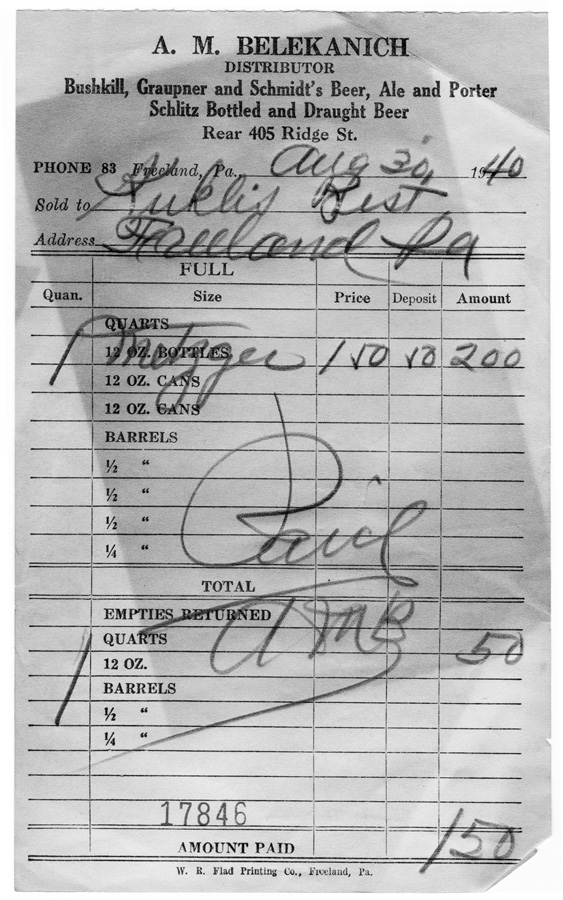 A. M. BELEKANICH
DISTRIBUTOR
Bushkill, Graupner and Schmidt's Beer, Ale and Porter
Schlitz Bottled and Draught Beer
Rear 405 Ridge St.
PHONE 83 Freeland, Pa., Aug 30, 1940
Sold to Rest
Address Freeland Pa
FULL
Quan. Size Price Deposit Amount
QUARTS
1 12 OZ. BOTTLES 150 50 200
12 OZ. CANS
12 OZ. CANS
BARRELS
½ "
½ "
½ "
¼ "
Paid
TOTAL
AMB
EMPTIES RETURNED
QUARTS 50
1 12 OZ.
BARRELS
½ "
¼ "
17846
AMOUNT PAID 150
W. R. Flad Printing Co., Freeland, Pa.